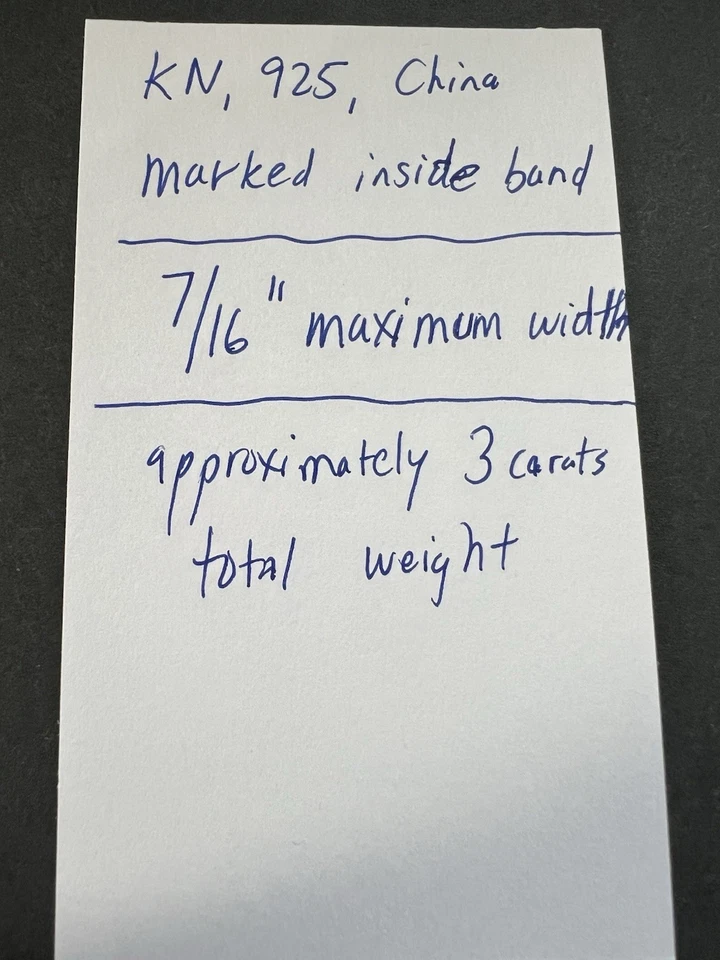 KN, 925, China
marked inside band
7/16" maximum width
approximately 3 carats
total weight